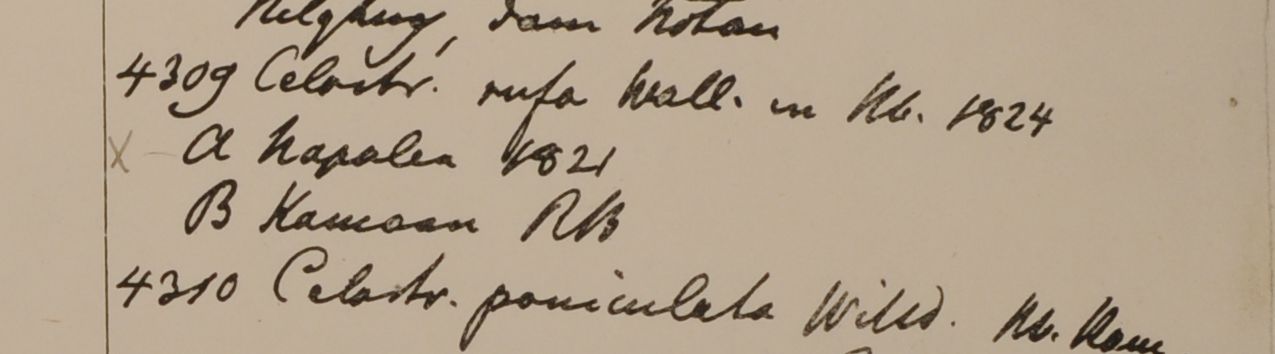 4309 Celastr. rufa Wall. in Hb. 1824
X – A Napalea 1821
B Kamaon RB
4310 Celastr. paniculata Willd. Hb. Ham